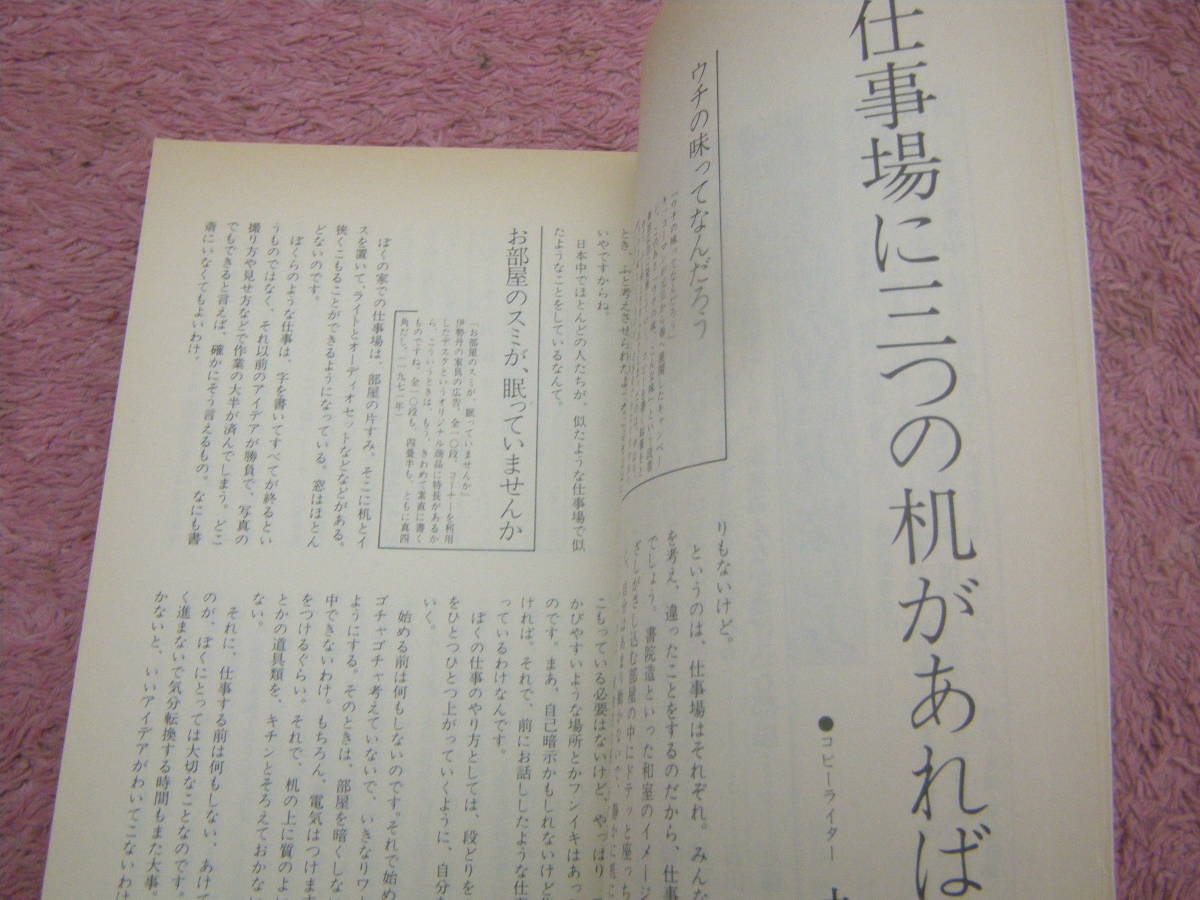 仕事場に三つの机があれば
●コピーライター
ウチの味ってなんだろう
りもないけど。
というのは、仕事場はそれぞれ。みんな
を考え、違ったことをするのだから、仕事
でしょう。書院造といった和室のイメージ
ざしがさし込む部屋の中にドテッと座っち
とき、ふと考えさせられた
いやですからね。
日本中でほとんどの人たちが、似たような仕事場で似
たようなことをしているなんて。
お部屋のスミが、眠っていませんか
「お部屋のスミが、眠っていませんか」
伊勢丹の家具の広告、全一〇段、コーナーを利用
したデスクというオリジナル商品に特長があるか
ら、こういうときは、もう、きわめて素直に書く
ものですね。全一〇段も、四畳半も、ともに真四
角だし。(一九七一年)
ぼくの家での仕事場は、部屋の片すみ、そこに机とイ
スを置いて、ライトとオーディオセットなどなどがある。
狭くこもることができるようになっている。窓はほとん
どないのです。
ぼくらのような仕事は、字を書いてすべてが終るとい
うものではなく、それ以前のアイデアが勝負で、写真の
撮り方や見せ方などで作業の大半が済んでしまう。どこ
でもできると言えば、確かにそう言えるもの。なにも書
斎にいなくてもよいわけ。
こもっている必要はないけど、やっぱり
かびやすいような場所とかフンイキはあっ
のです。まあ、自己暗示かもしれないけど
ければ。それで、前にお話ししたような仕
っているわけなんです。
ぼくの仕事のやり方としては、段どりを
をひとつひとつ上がっていくように、自分
いく。
始める前は何もしないのです。それで始め
ゴチャゴチャ考えていないで、いきなりワー
ようにする。そのときは、部屋を暗くしな
中できないわけ。もちろん、電気はつけます
をつけるぐらい。それで、机の上に質のよ
とかの道具類を、キチンとそろえておかな
ない。
それに、仕事する前は何もしない、あけて
のが、ぼくにとっては大切なことなのです。
く進まないで気分転換する時間もまた大事。
かないと、いいアイデアがわいてこないわけ